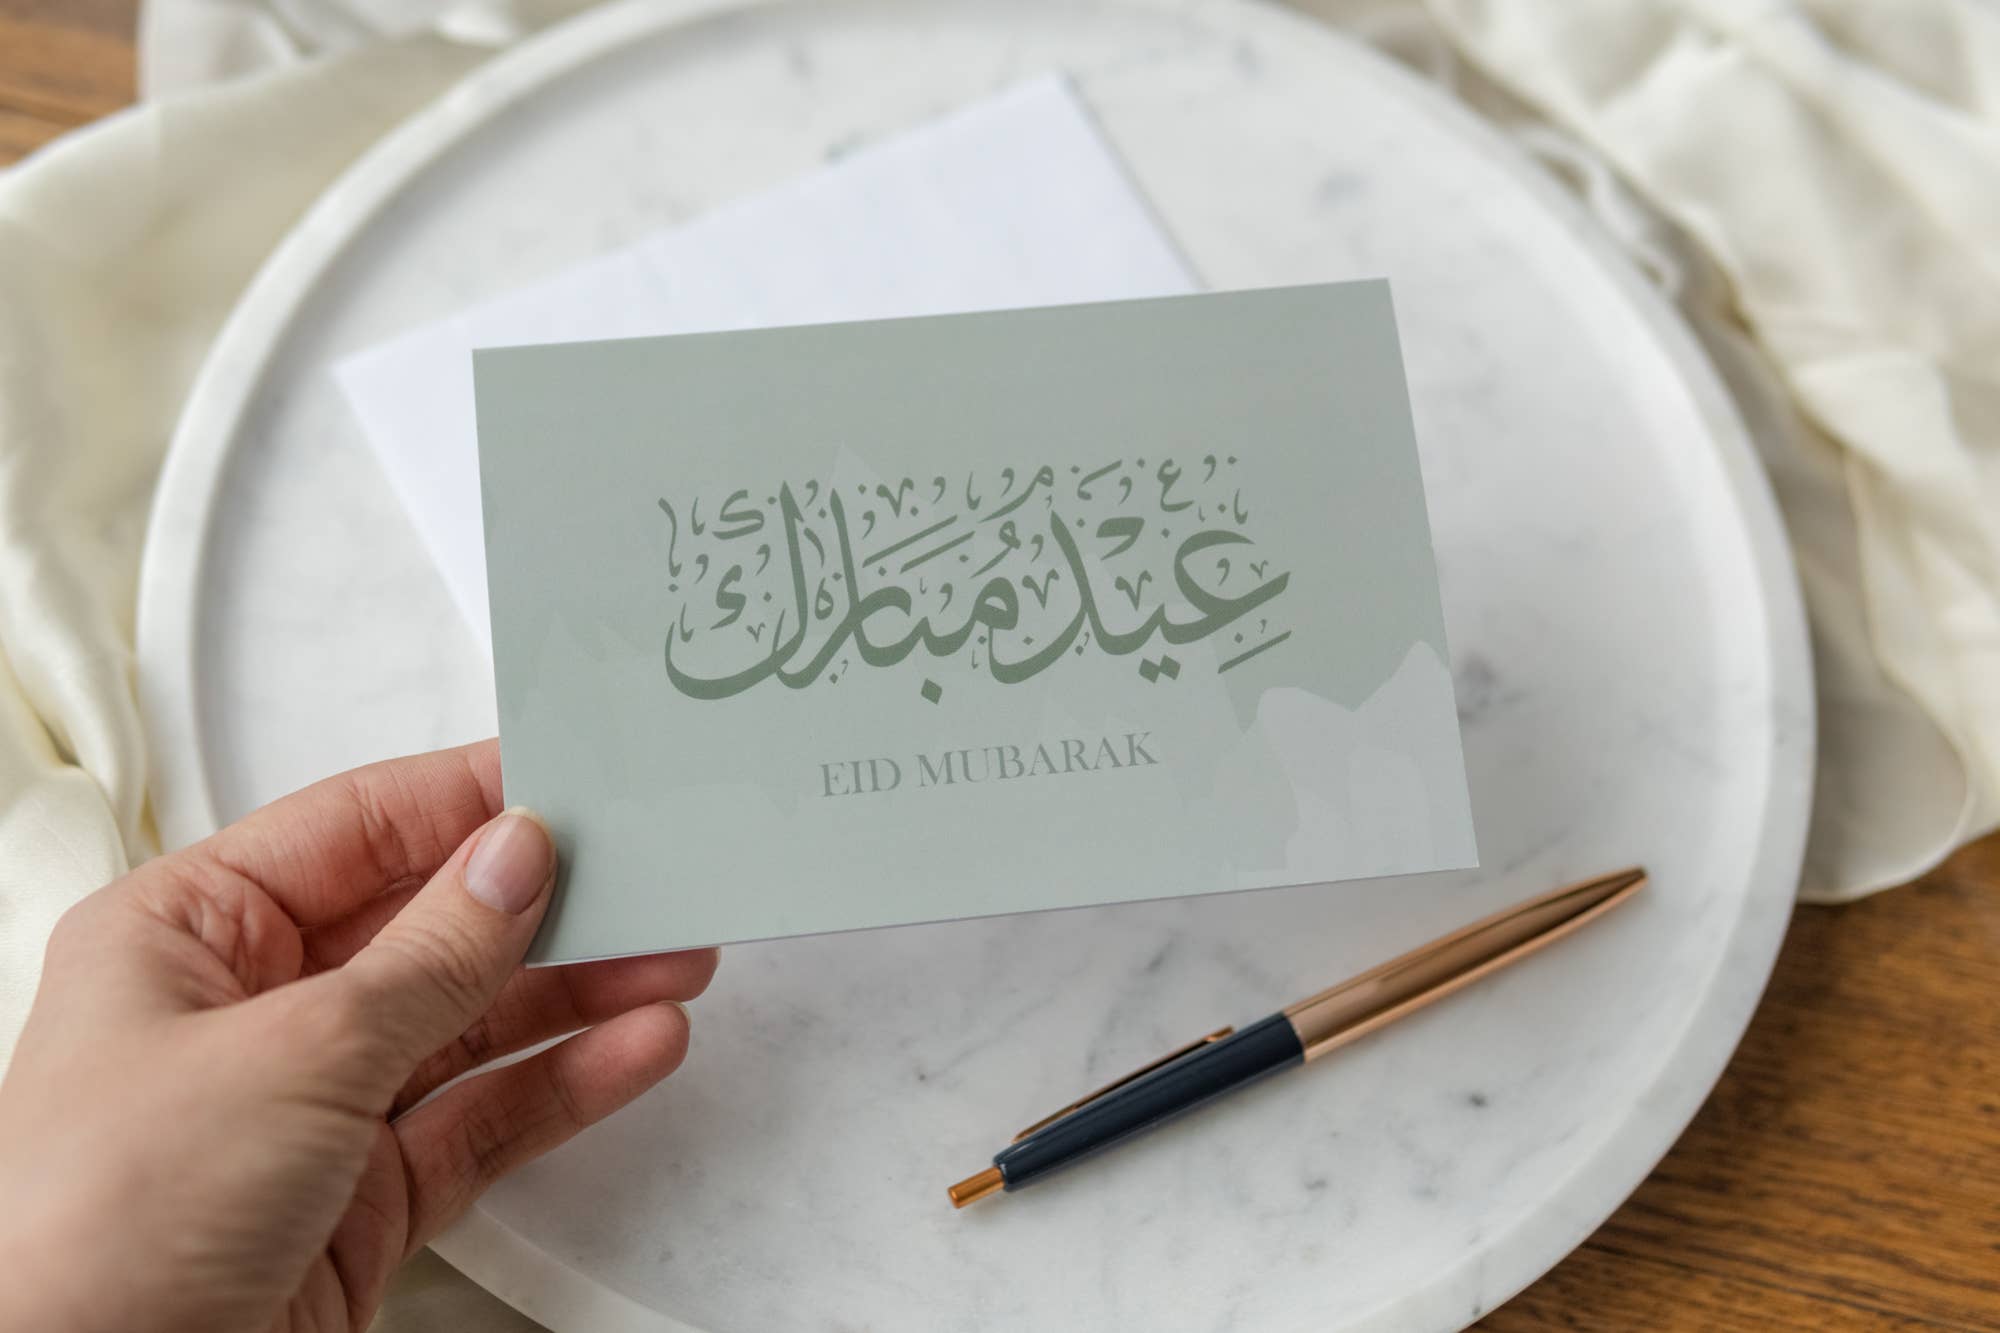 عِيْدُ مُبَارَك
EID MUBARAK